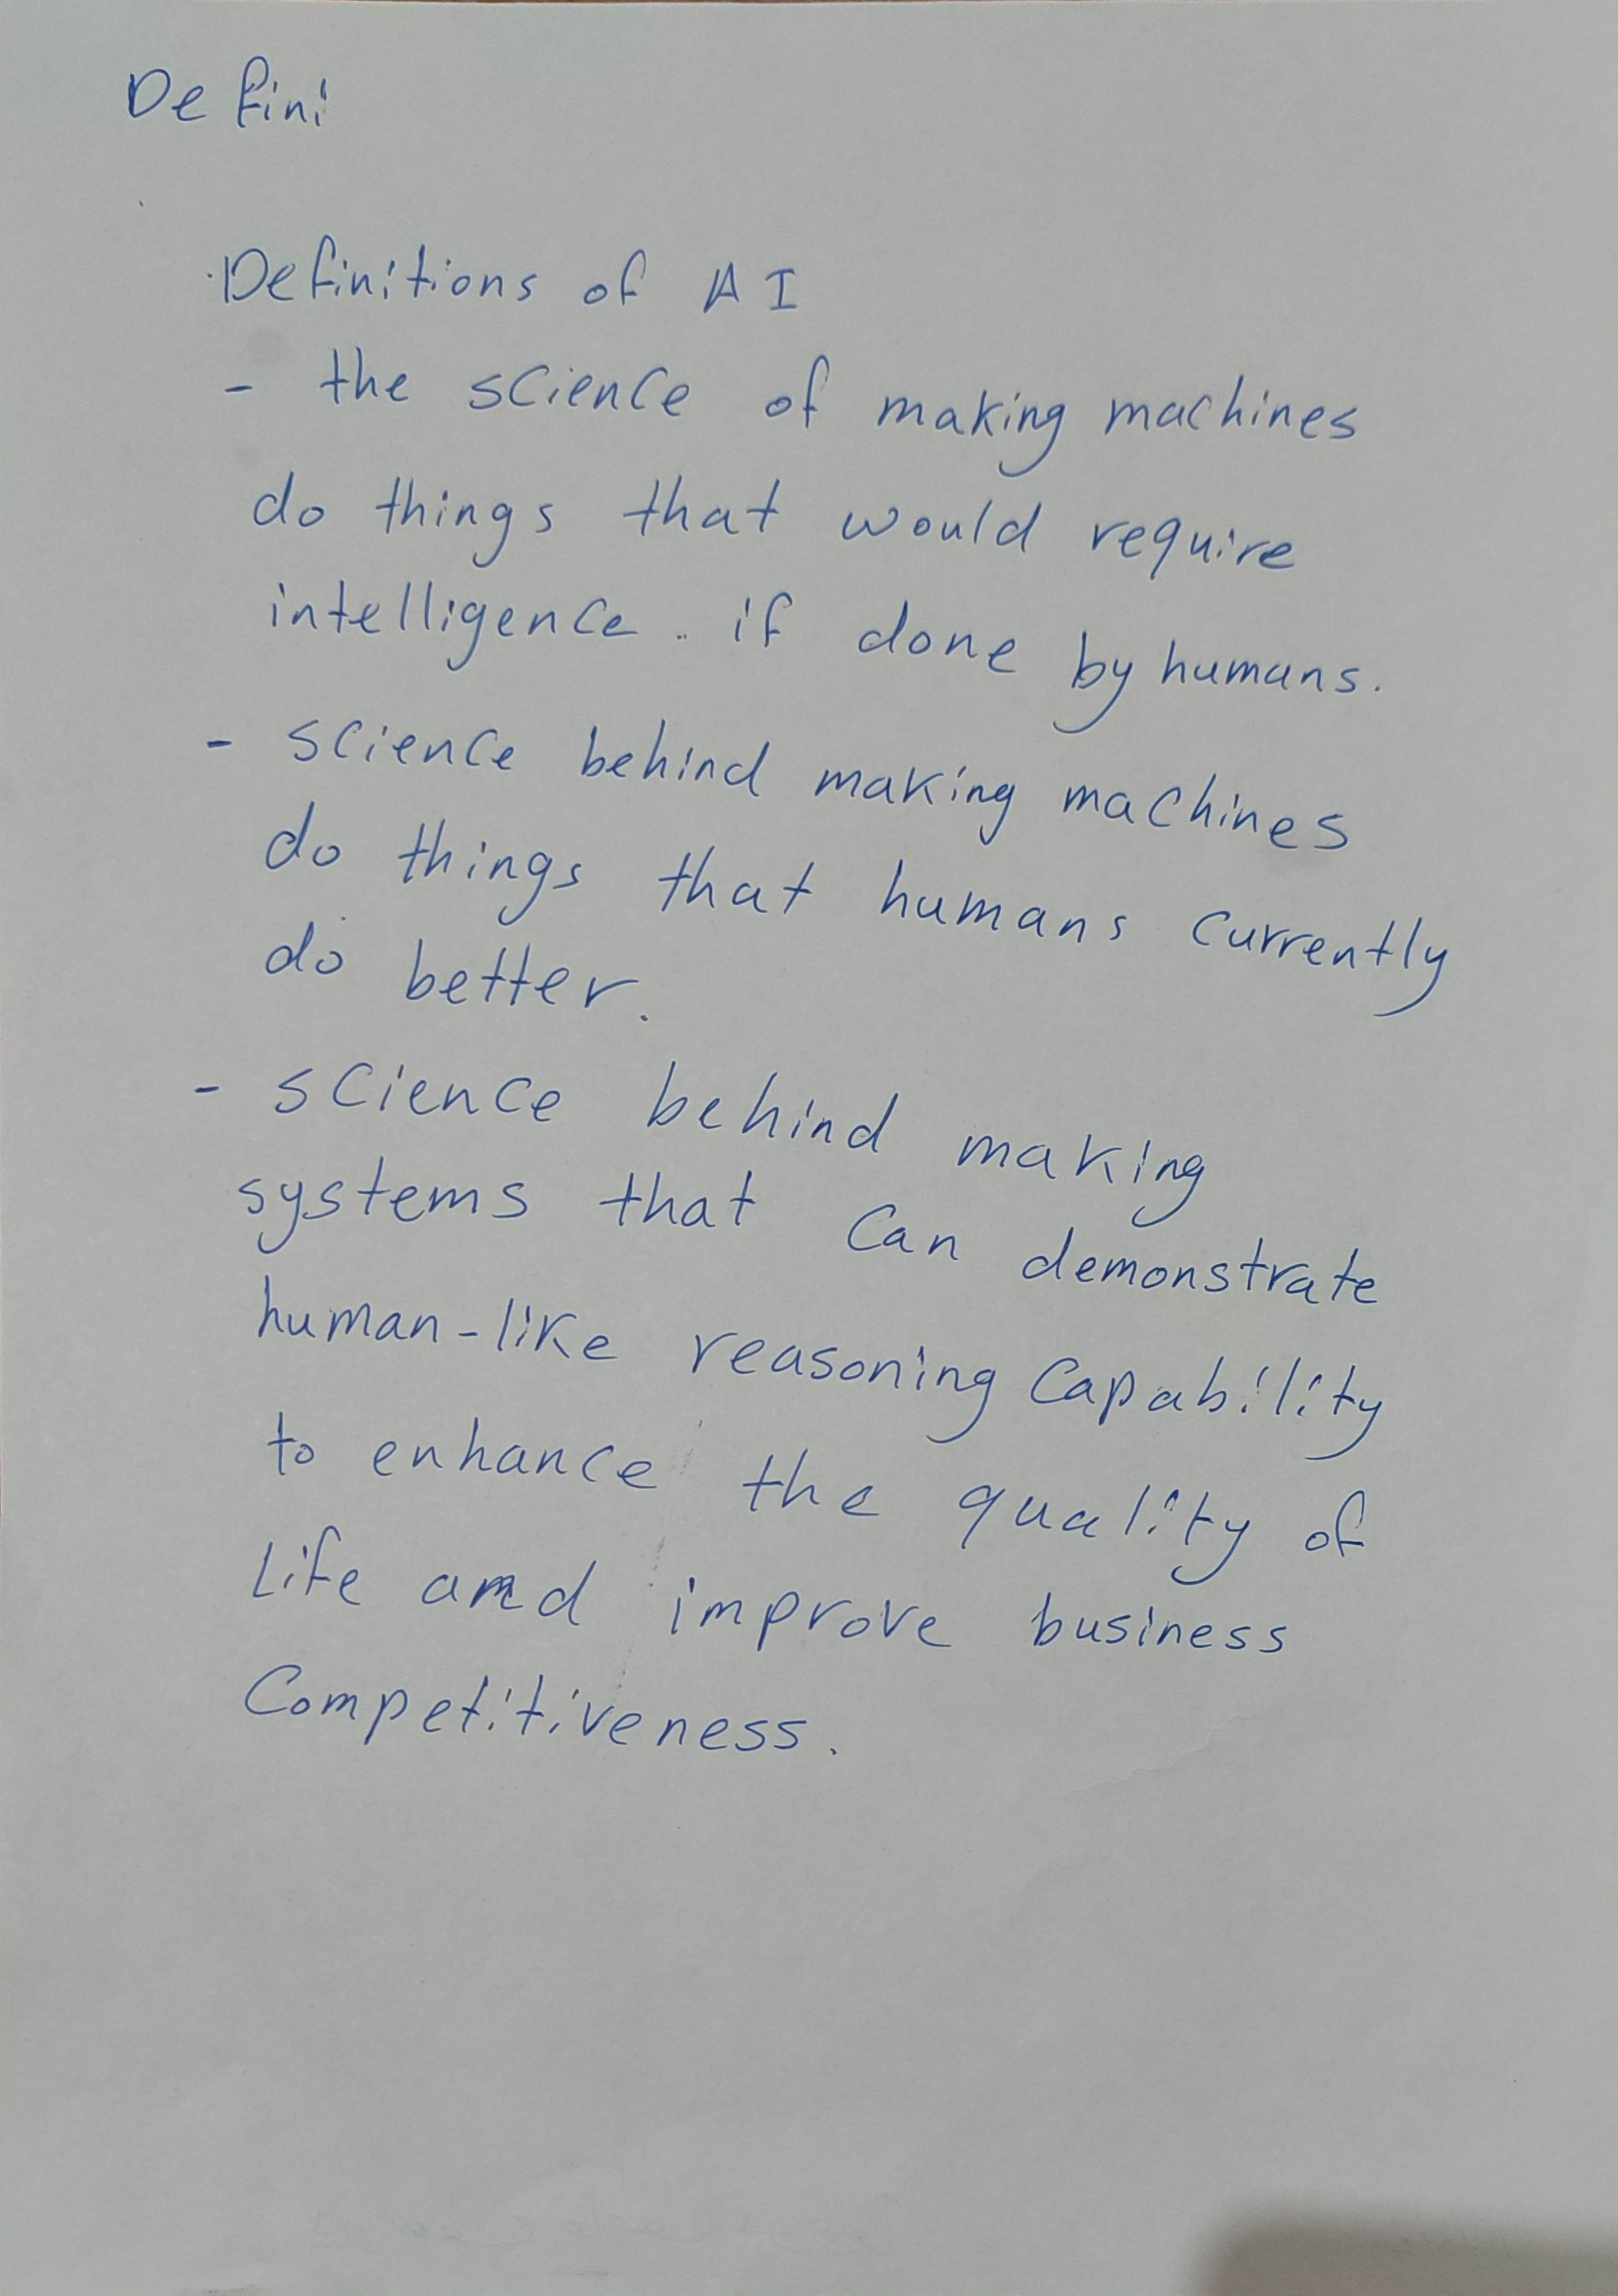 Defini
Definitions of AI
- the science of making machines
do things that would require
intelligence. if done by humans.
- science behind making machines
do things that humans currently
do better.
- science behind making
systems that can demonstrate
human-like reasoning capability
to enhance the quality of
life and improve business
Competitiveness.